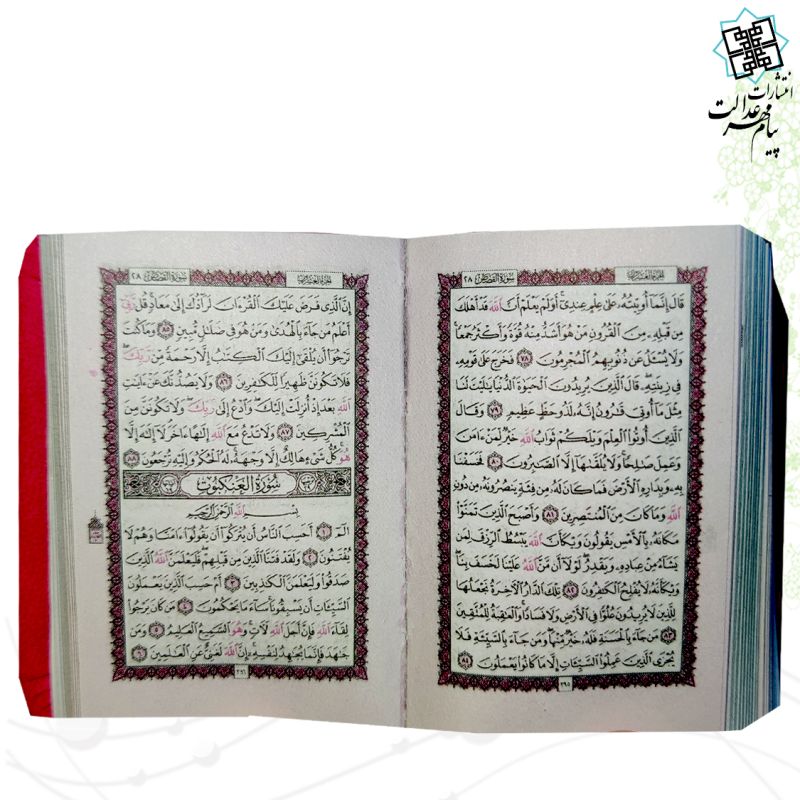 انتشارات
پیام مهر عدالت
الجزء العشرون
سورة القصص ٢٨
قَالَ إِنَّمَا أُوتِيتُهُۥ عَلَىٰ عِلْمٍ عِندِيٓ ۚ أَوَلَمْ يَعْلَمْ أَنَّ اللَّهَ قَدْ أَهْلَكَ
مِن قَبْلِهِۦ مِنَ الْقُرُونِ مَنْ هُوَ أَشَدُّ مِنْهُ قُوَّةً وَأَكْثَرُ جَمْعًا ۚ
وَلَا يُسْـَٔلُ عَن ذُنُوبِهِمُ الْمُجْرِمُونَ ﴿٧٨﴾ فَخَرَجَ عَلَىٰ قَوْمِهِۦ
فِي زِينَتِهِۦ ۖ قَالَ الَّذِينَ يُرِيدُونَ الْحَيَوٰةَ الدُّنْيَا يَٰلَيْتَ لَنَا
مِثْلَ مَآ أُوتِيَ قَٰرُونُ إِنَّهُۥ لَذُو حَظٍّ عَظِيمٍ ﴿٧٩﴾ وَقَالَ
الَّذِينَ أُوتُوا الْعِلْمَ وَيْلَكُمْ ثَوَابُ اللَّهِ خَيْرٌ لِّمَنْ ءَامَنَ
وَعَمِلَ صَٰلِحًا وَلَا يُلَقَّىٰهَآ إِلَّا الصَّٰبِرُونَ ﴿٨٠﴾ فَخَسَفْنَا
بِهِۦ وَبِدَارِهِ الْأَرْضَ فَمَا كَانَ لَهُۥ مِن فِئَةٍ يَنصُرُونَهُۥ مِن دُونِ
اللَّهِ وَمَا كَانَ مِنَ الْمُنتَصِرِينَ ﴿٨١﴾ وَأَصْبَحَ الَّذِينَ تَمَنَّوْا
مَكَانَهُۥ بِالْأَمْسِ يَقُولُونَ وَيْكَأَنَّ اللَّهَ يَبْسُطُ الرِّزْقَ لِمَن
يَشَآءُ مِنْ عِبَادِهِۦ وَيَقْدِرُ ۖ لَوْلَآ أَن مَّنَّ اللَّهُ عَلَيْنَا لَخَسَفَ بِنَا ۖ
وَيْكَأَنَّهُۥ لَا يُفْلِحُ الْكَٰفِرُونَ ﴿٨٢﴾ تِلْكَ الدَّارُ الْءَاخِرَةُ نَجْعَلُهَا
لِلَّذِينَ لَا يُرِيدُونَ عُلُوًّا فِي الْأَرْضِ وَلَا فَسَادًا ۚ وَالْعَٰقِبَةُ لِلْمُتَّقِينَ
﴿٨٣﴾ مَن جَآءَ بِالْحَسَنَةِ فَلَهُۥ خَيْرٌ مِّنْهَا ۖ وَمَن جَآءَ بِالسَّيِّئَةِ فَلَا
يُجْزَى الَّذِينَ عَمِلُوا السَّيِّـَٔاتِ إِلَّا مَا كَانُوا يَعْمَلُونَ ﴿٨٤﴾
٣٩٥
الجزء العشرون
سورة القصص ٢٨
إِنَّ الَّذِي فَرَضَ عَلَيْكَ الْقُرْءَانَ لَرَآدُّكَ إِلَىٰ مَعَادٍ ۚ قُل رَّبِّيٓ
أَعْلَمُ مَن جَآءَ بِالْهُدَىٰ وَمَنْ هُوَ فِي ضَلَٰلٍ مُّبِينٍ ﴿٨٥﴾ وَمَا كُنتَ
تَرْجُوٓا أَن يُلْقَىٰٓ إِلَيْكَ الْكِتَٰبُ إِلَّا رَحْمَةً مِّن رَّبِّكَ ۖ
فَلَا تَكُونَنَّ ظَهِيرًا لِّلْكَٰفِرِينَ ﴿٨٦﴾ وَلَا يَصُدُّنَّكَ عَنْ ءَايَٰتِ
اللَّهِ بَعْدَ إِذْ أُنزِلَتْ إِلَيْكَ ۖ وَادْعُ إِلَىٰ رَبِّكَ ۖ وَلَا تَكُونَنَّ مِنَ
الْمُشْرِكِينَ ﴿٨٧﴾ وَلَا تَدْعُ مَعَ اللَّهِ إِلَٰهًا ءَاخَرَ ۘ لَآ إِلَٰهَ إِلَّا
هُوَ ۚ كُلُّ شَيْءٍ هَالِكٌ إِلَّا وَجْهَهُۥ ۚ لَهُ الْحُكْمُ وَإِلَيْهِ تُرْجَعُونَ ﴿٨٨﴾
سُورَةُ الْعَنكَبُوتِ
بِسْمِ اللَّهِ الرَّحْمَٰنِ الرَّحِيمِ
الٓمٓ ﴿١﴾ أَحَسِبَ النَّاسُ أَن يُتْرَكُوٓا أَن يَقُولُوٓا ءَامَنَّا وَهُمْ لَا
يُفْتَنُونَ ﴿٢﴾ وَلَقَدْ فَتَنَّا الَّذِينَ مِن قَبْلِهِمْ ۖ فَلَيَعْلَمَنَّ اللَّهُ الَّذِينَ
صَدَقُوا وَلَيَعْلَمَنَّ الْكَٰذِبِينَ ﴿٣﴾ أَمْ حَسِبَ الَّذِينَ يَعْمَلُونَ
السَّيِّـَٔاتِ أَن يَسْبِقُونَا ۚ سَآءَ مَا يَحْكُمُونَ ﴿٤﴾ مَن كَانَ يَرْجُوا
لِقَآءَ اللَّهِ فَإِنَّ أَجَلَ اللَّهِ لَءَاتٍ ۚ وَهُوَ السَّمِيعُ الْعَلِيمُ ﴿٥﴾ وَمَن
جَٰهَدَ فَإِنَّمَا يُجَٰهِدُ لِنَفْسِهِۦٓ ۚ إِنَّ اللَّهَ لَغَنِيٌّ عَنِ الْعَٰلَمِينَ ﴿٦﴾
٣٩٦